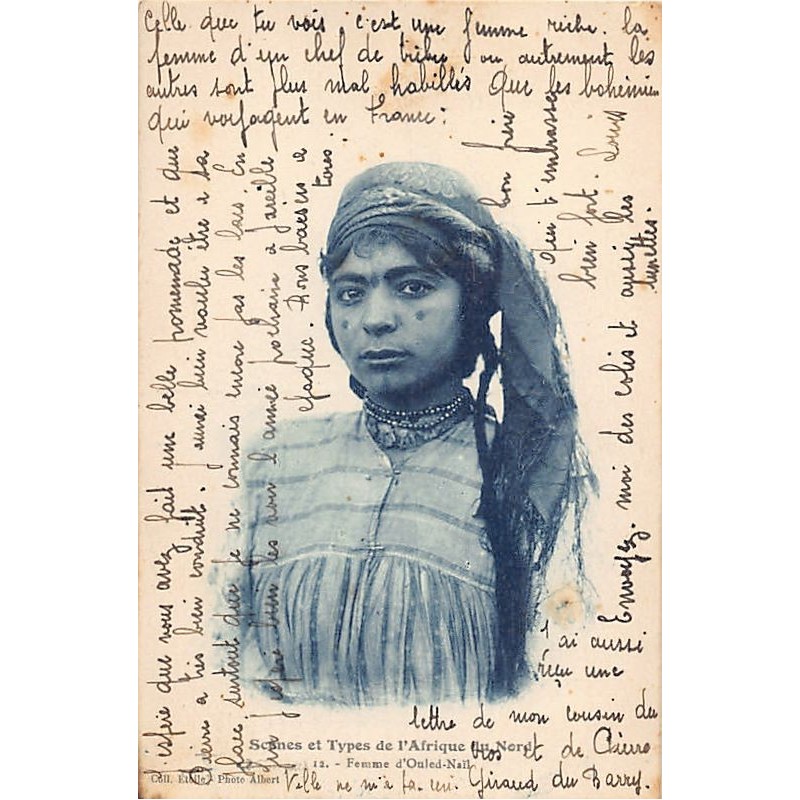 Celle que tu vois c'est une femme riche. la
femme d'un chef de tribu ou autrement les
autres sont plus mal habillés que les bohémiens
qui voyagent en France:
J'espère que vous avez fait une belle promenade et que
Pierre a très bien conduit. J'aurai bien voulu être à sa
place surtout que je ne connais encore pas les lacs. Enfin
j'espère bien les voir l'année prochaine à pareille
époque. Bons baisers à
tous.
bon frère
qui t'embrasse
bien fort. Louis
Envoyez. moi des colis et aussi les
lunettes.
J'ai aussi
reçu une
lettre de mon cousin du
Bros et de Pierre
Giraud du Barry.
Ville ne m'a pas
Scènes et Types de l'Afrique du Nord
12. - Femme d'Ouled-Naïl
Coll. Etoile, Photo Albert